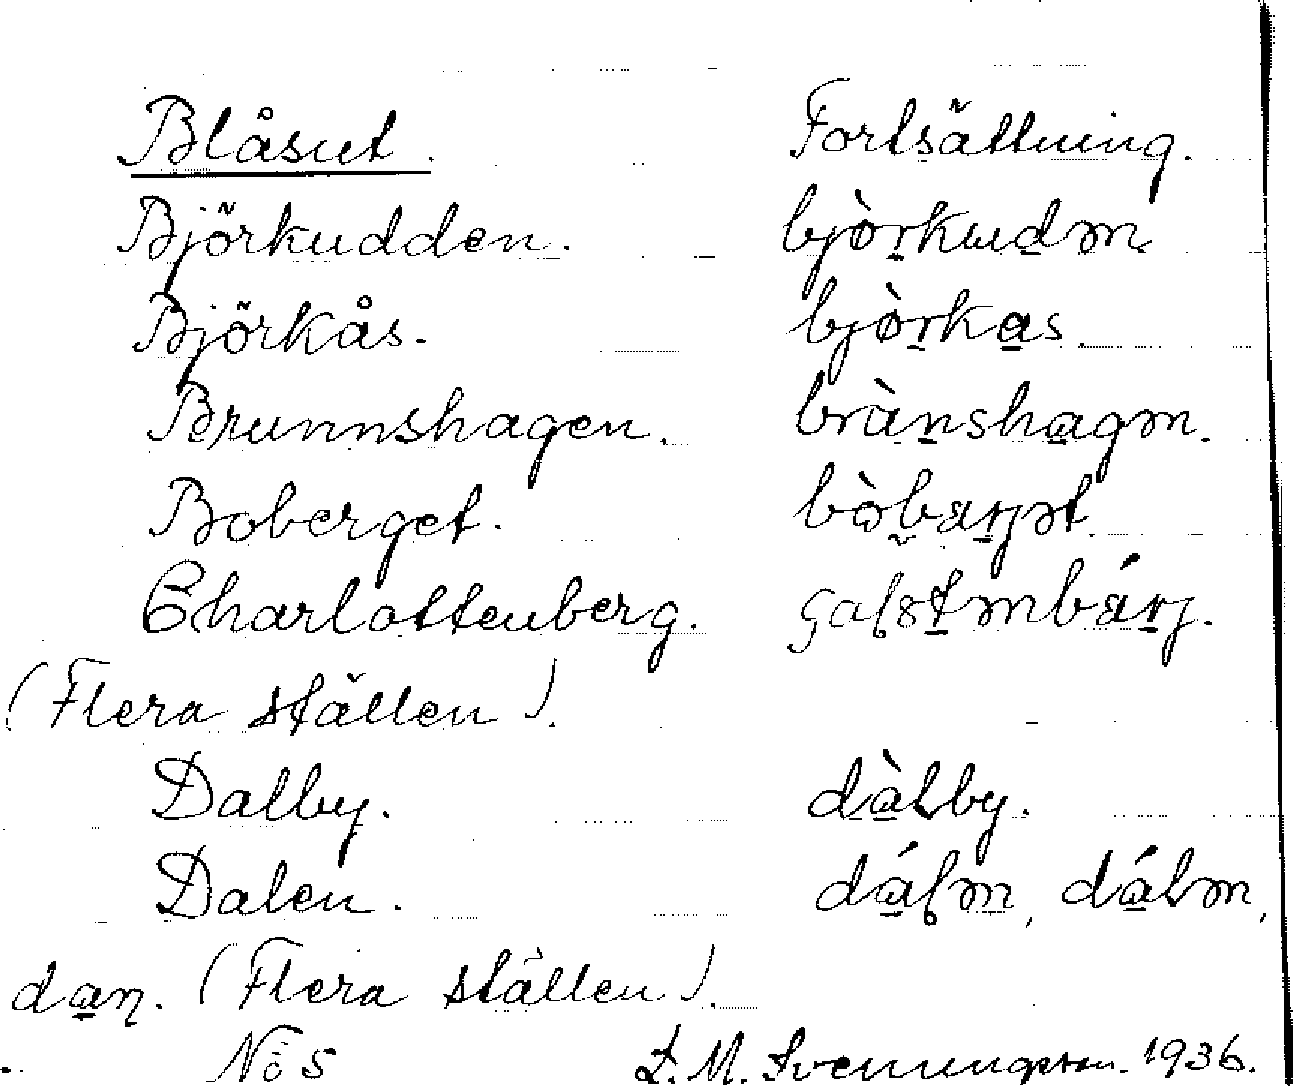 Blåsut. Fortsättning.
Björkudden. bjò̱rkudən
Björkås. bjò̱rkas
Brunnshagen. brànshagən.
Boberget. bòbærjət
Charlottenberg. bǽrj.
(Flera ställen).
Dalby. dàlby.
Dalen. dáɭən, dálən,
daɳ. (Flera ställen).
No 5 L. M. Svenungsson. 1936.